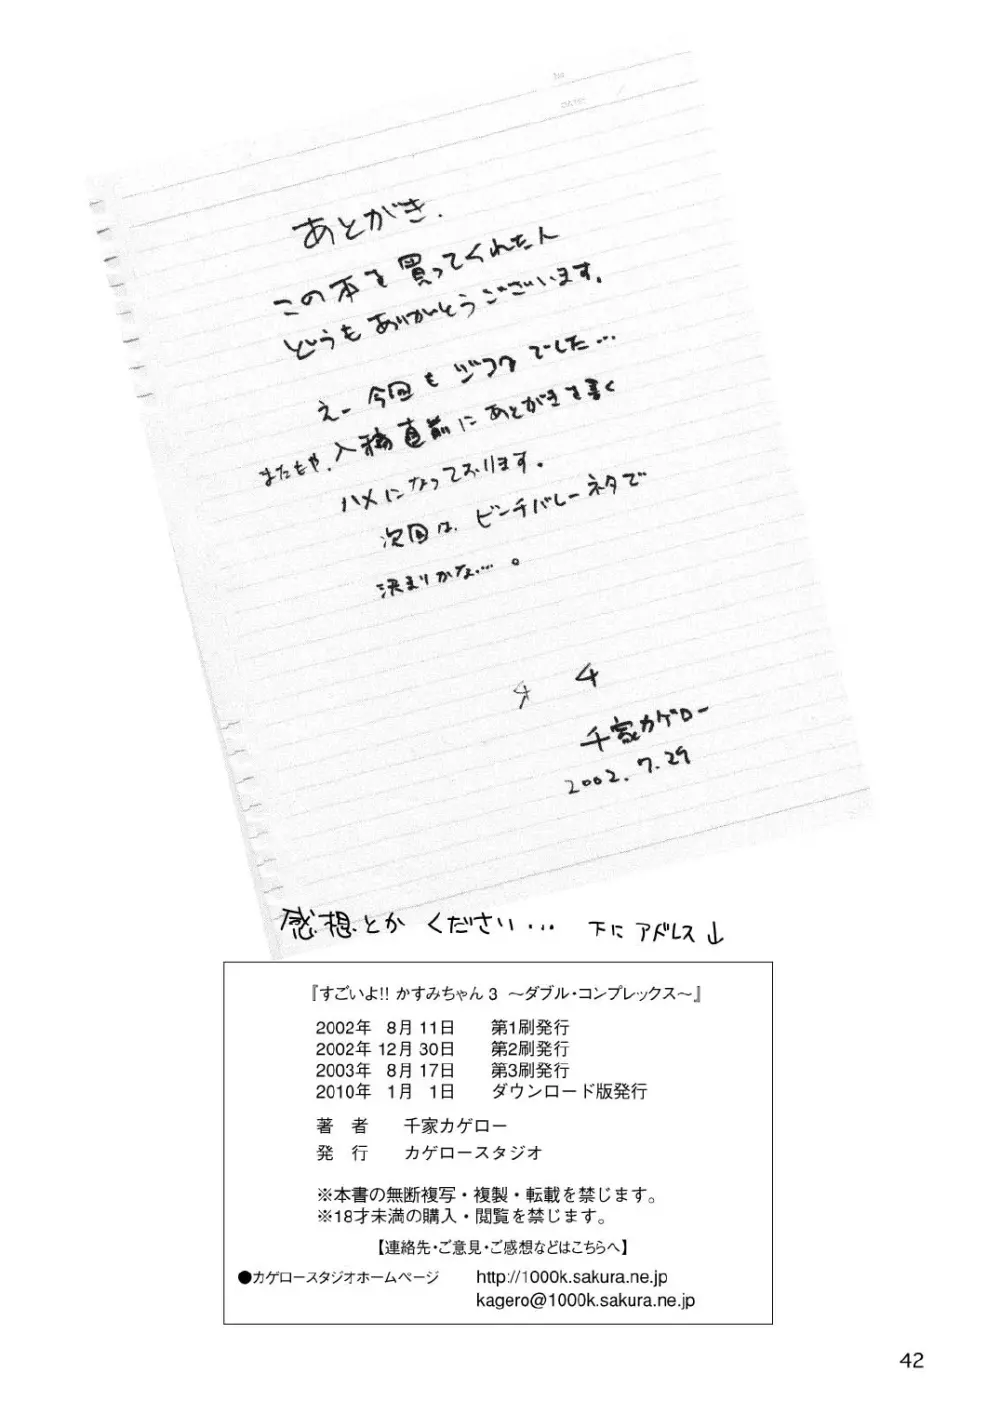 あとがき.
この本を買ってくれた人
どうもありがとうございます.
えー今回もジフクでした…
またもや、入稿直前にあとがきを書く
ハメになっております.
次回は、ピンチバレーネタで
決まりかな…。
千家カゲロー
2002.7.29
感想とかください… 下にアドレス↓
『すごいよ!! かすみちゃん 3 ～ダブル・コンプレックス～』
2002年 8月 11日 第1刷発行
2002年 12月 30日 第2刷発行
2003年 8月 17日 第3刷発行
2010年 1月 1日 ダウンロード版発行
著 者 千家カゲロー
発 行 カゲロースタジオ
※本書の無断複写・複製・転載を禁じます。
※18才未満の購入・閲覧を禁じます。
【連絡先・ご意見・ご感想などはこちらへ】
●カゲロースタジオホームページ http://1000k.sakura.ne.jp
kagero@1000k.sakura.ne.jp
42